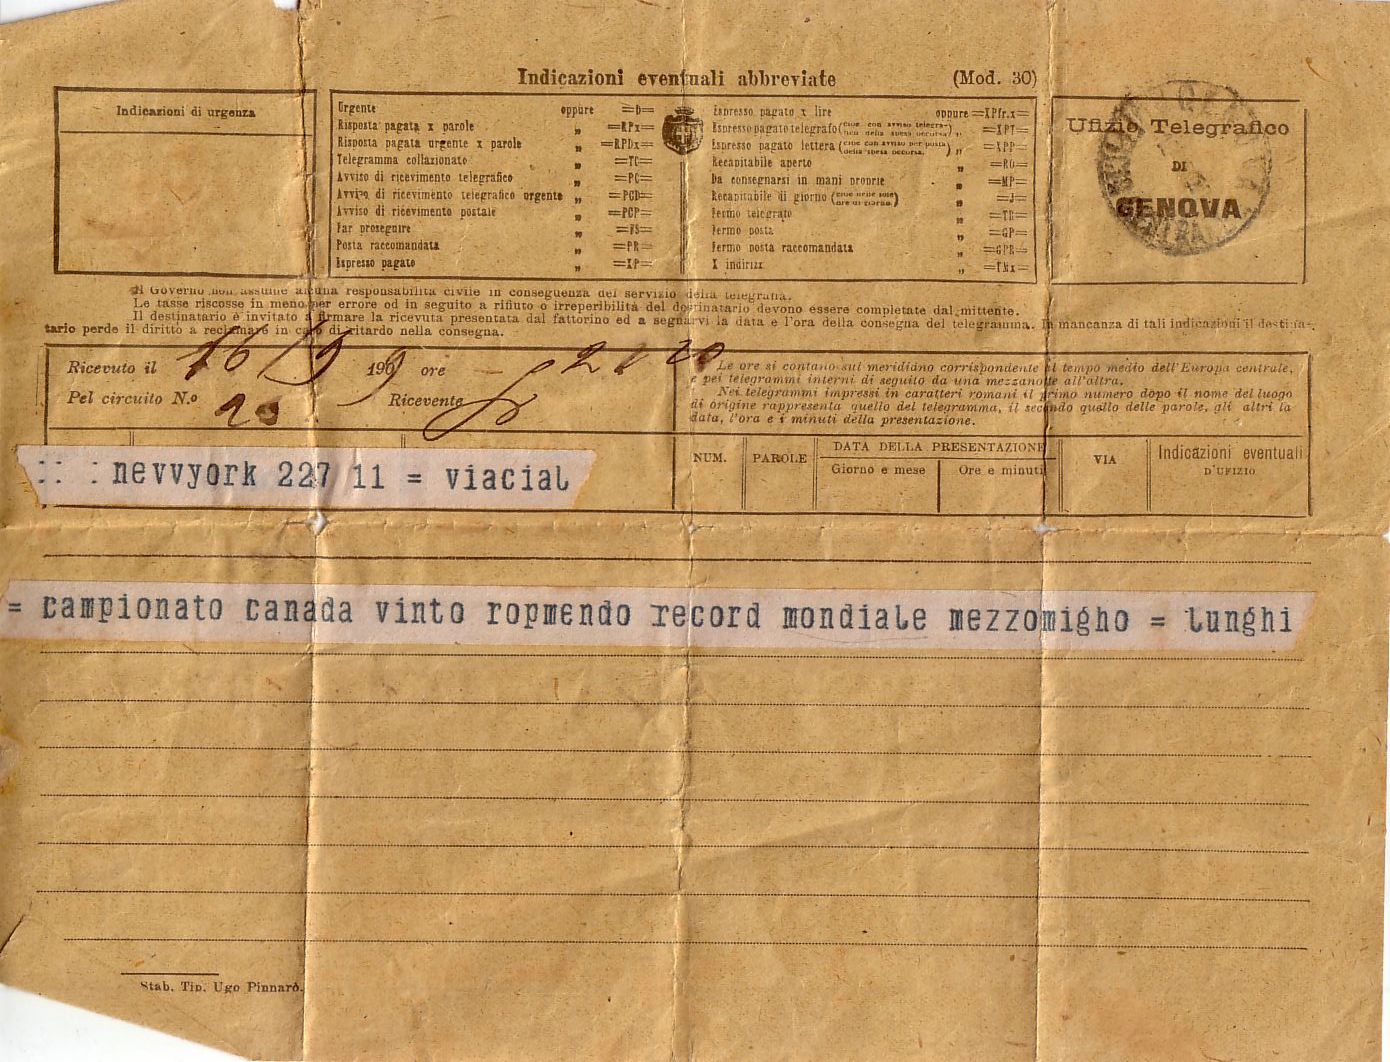 Indicazioni eventuali abbreviate (Mod. 30)
Indicazioni di urgenza
Urgente oppure =D=
Risposta pagata x parole „ =RPx=
Risposta pagata urgente x parole „ =RPDx=
Telegramma collazionato „ =TC=
Avviso di ricevimento telegrafico „ =PC=
Avviso di ricevimento telegrafico urgente „ =PCD=
Avviso di ricevimento postale „ =PCP=
Far proseguire „ =FS=
Posta raccomandata „ =PR=
Espresso pagato „ =XP=
Espresso pagato x lire oppure =XPfr.x=
Espresso pagato telegrafo (cioè con avviso telegra- „ =XPT=
Espresso pagato lettera (cioè con avviso per posta
della spesa occorsa. ) „ =XPP=
Recapitabile aperto „ =RO=
Da consegnarsi in mani proprie „ =MP=
Recapitabile di giorno (cioè nelle sole
ore di giorno) „ =J=
Fermo telegrafo „ =TR=
Fermo posta „ =GP=
Fermo posta raccomandata „ =GPR=
X indirizi „ =TMx=
Ufizio Telegrafico
DI
GENOVA
Il Governo non assume alcuna responsabilità civile in conseguenza del servizio della telegrafia.
Le tasse riscosse in meno per errore od in seguito a rifiuto o irreperibilità del destinatario devono essere completate dal mittente.
Il destinatario è invitato a firmare la ricevuta presentata dal fattorino ed a segnarvi la data e l'ora della consegna del telegramma. In mancanza di tali indicazioni il destina-
tario perde il diritto a reclamare in caso di ritardo nella consegna.
Ricevuto il 16/9 1909 ore 21 20
Pel circuito N.o 20 Ricevente
Le ore si contano sul meridiano corrispondente al tempo medio dell'Europa centrale,
e pei telegrammi interni di seguito da una mezzanotte all'altra.
Nei telegrammi impressi in caratteri romani il primo numero dopo il nome del luogo
di origine rappresenta quello del telegramma, il secondo quello delle parole, gli altri la
data, l'ora e i minuti della presentazione.
NUM. PAROLE DATA DELLA PRESENTAZIONE VIA Indicazioni eventuali
D'UFIZIO
Giorno e mese Ore e minuti
:: : nevvyork 227 11 = viacial
= campionato canada vinto ropmendo record mondiale mezzomigho = lunghi
Stab. Tip. Ugo Pinnarò.